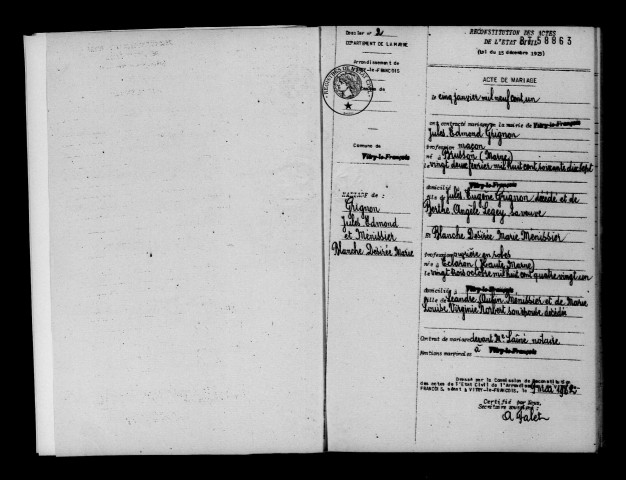 Dossier n° 2
DEPARTEMENT DE LA MARNE
Arrondissement de
VITRY-le-FRANCOIS
Commune de
Vitry-le-François
MARIAGE de :
Grignon
Jules Edmond
et Ménissier
Blanche Désirée Marie
RECONSTITUTION DES ACTES
DE L'ETAT CIVIL
58863
(Loi du 15 décembre 1923)
ACTE DE MARIAGE
Le cinq janvier mil neuf cent un
ont contracté mariage en la mairie de Vitry-le-François
Jules Edmond Grignon
profession maçon
né à Brusson (Marne)
le vingt deux février mil huit cent soixante dix sept
domicilié à Vitry-le-François
fils de Jules Eugène Grignon décédé et de
Berthe Angèle Legey sa veuve
et Blanche Désirée Marie Ménissier
profession ouvrière en robes
née à Eclaron (Haute Marne)
le vingt trois octobre mil huit cent quatre vingt un
domiciliée à Vitry-le-François
fille de Léandre Aubin Ménissier et de Marie
Louise Virginie Norbert son épouse décédée
Contrat de mariage devant Me Lainé notaire
à Vitry-le-François
Mentions marginales
Dressé par la Commission de Reconstitution
des actes de l'Etat Civil de l'Arrondissement
FRANCOIS, séant à VITRY-le-FRANCOIS, le
Certifié par Nous,
Secrétaire soussigné :
A Galet